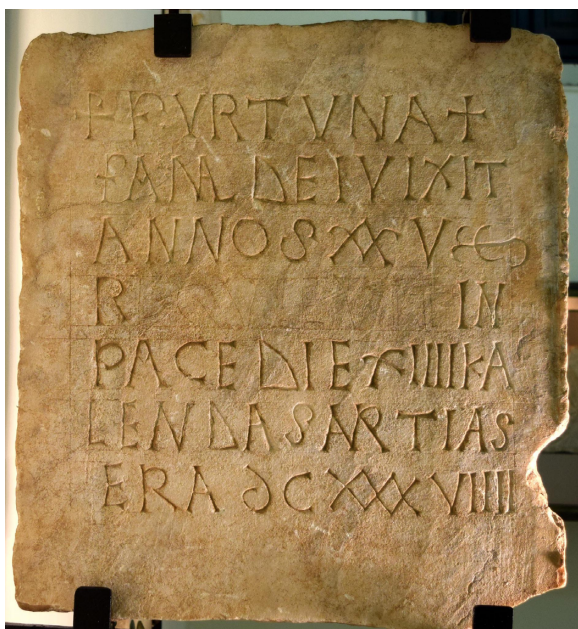 + FVRTVNA +
FAM DEI VIXIT
ANNOS XXV
R IN
PACE DIE XIIII KA
LENDAS ARTIAS
ERA DCXXXVIIII